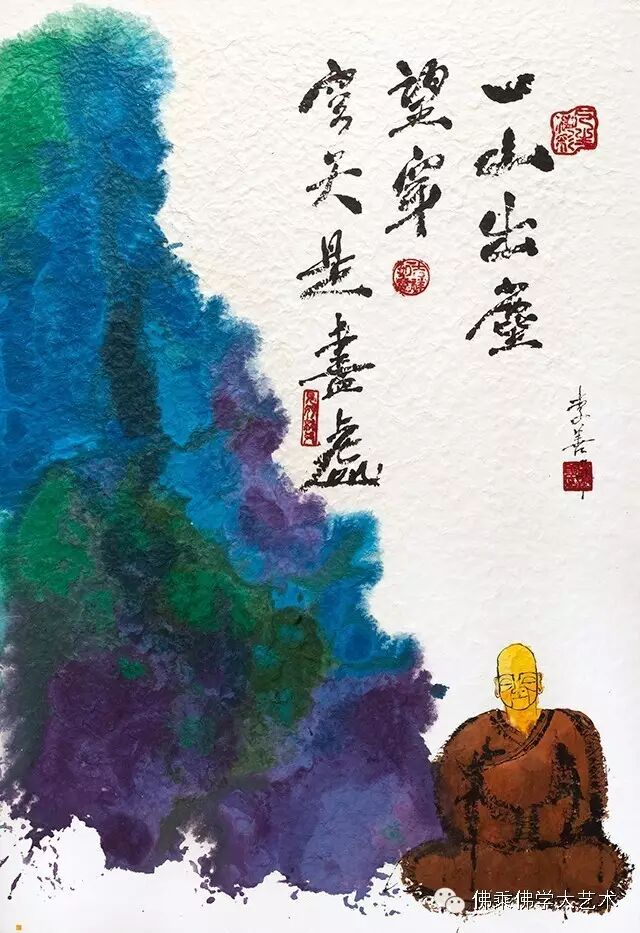 一山出塵
望穿
天是盡虛
李善
佛乘佛学大艺术